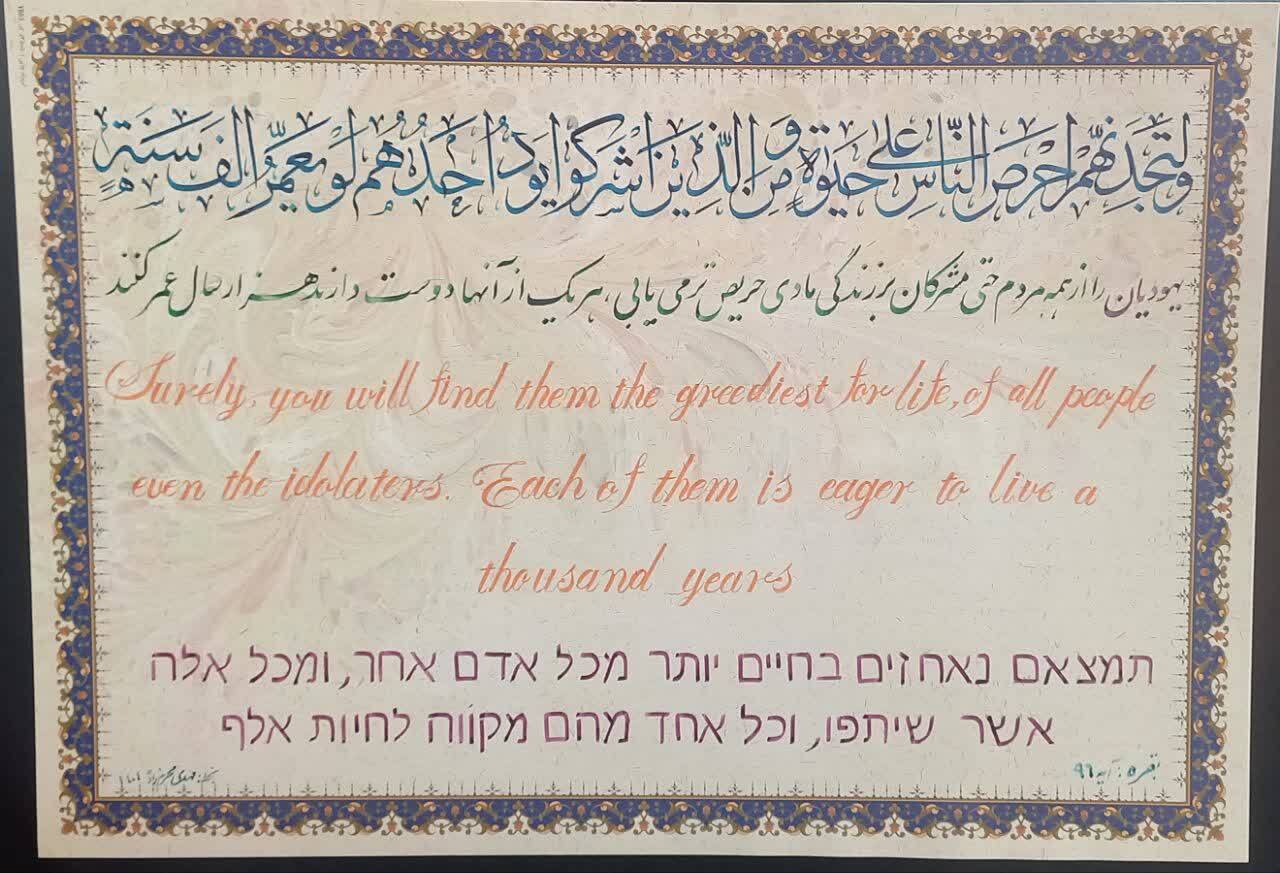 ولتجدنهم احرص الناس علی حیوة و من الذین اشرکوا یود احدهم لو یعمر الف سنة
یهودیان را از همه مردم حتی مشرکان بر زندگی مادی حریص تر می یابی، هر یک از آنها دوست دارند هزار سال عمر کنند
Surely, you will find them the greediest for life, of all people
even the idolaters. Each of them is eager to live a
thousand years
תמצאם נאחזים בחיים יותר מכל אדם אחר, ומכל אלה
אשר שיתפו, וכל אחד מהם מקווה לחיות אלף
بقره: آیه ۹۶